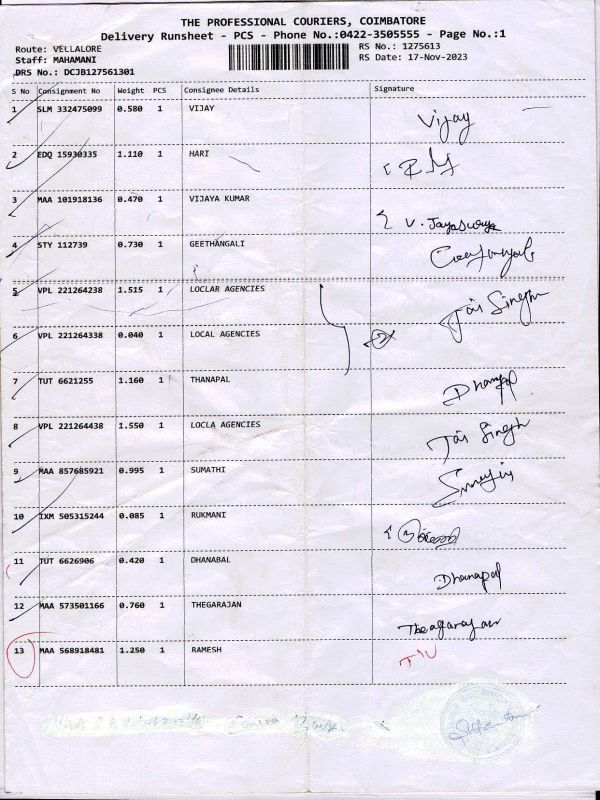 THE PROFESSIONAL COURIERS, COIMBATORE
Delivery Runsheet - PCS - Phone No.:0422-3505555 - Page No.:1
Route: VELLALORE
Staff: MAHAMANI
DRS No.: DCJB127561301
RS No.: 1275613
RS Date: 17-Nov-2023
S No Consignment No Weight PCS Consignee Details Signature
1 SLM 332475099 0.580 1 VIJAY Vijay
2 EDQ 15930335 1.110 1 HARI
3 MAA 101918136 0.470 1 VIJAYA KUMAR V. Jayasurya
4 STY 112739 0.730 1 GEETHANGALI
5 VPL 221264238 1.515 1 LOCLAR AGENCIES Jai Singh
6 VPL 221264338 0.040 1 LOCAL AGENCIES
7 TUT 6621255 1.160 1 THANAPAL Dhanapal
8 VPL 221264438 1.550 1 LOCLA AGENCIES Jai Singh
9 MAA 857685921 0.995 1 SUMATHI
10 IXM 505315244 0.085 1 RUKMANI
11 TUT 6626906 0.420 1 DHANABAL Dhanapal
12 MAA 573501166 0.760 1 THEGARAJAN Theagarajan
13 MAA 568918481 1.250 1 RAMESH